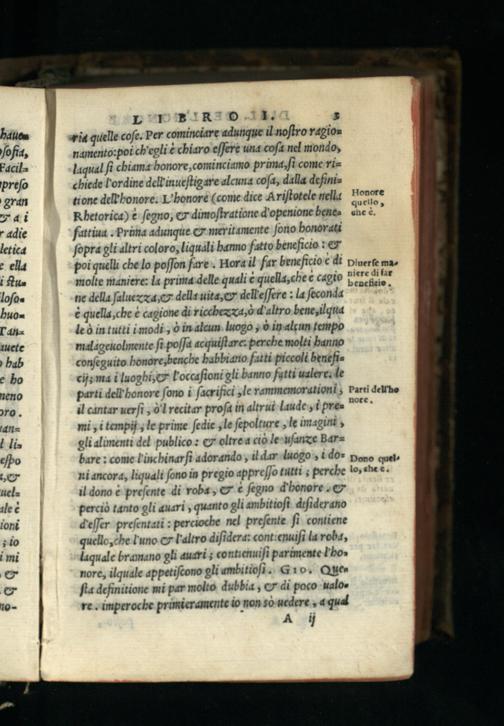 LIBRO I. 3
ria quelle cose. Per cominciare adunque il nostro ragio-
namento: poi ch'egli è chiaro essere una cosa nel mondo,
laqual si chiama honore, cominciamo prima, si come ri-
chiede l'ordine dell'inuestigare alcuna cosa, dalla defini-
tione dell'honore. L'honore (come dice Aristotele nella
Rhetorica) è segno, & dimostratione d'openione bene-
fattiua. Prima adunque & meritamente sono honorati
sopra gli altri coloro, liquali hanno fatto beneficio: &
poi quelli che lo posson fare. Hora il far beneficio è di
molte maniere: la prima delle quali è quella, che è cagio
ne della saluezza, & della uita, & dell'essere: la seconda
è quella, che è cagione di ricchezza, ò d'altro bene, ilqua
le ò in tutti i modi, ò in alcun luogo, ò in alcun tempo
malageuolmente si possa acquistare. perche molti hanno
conseguito honore, benche habbiano fatti piccoli benefi-
cij; ma i luoghi, & l'occasioni gli hanno fatti ualere. le
parti dell'honore sono i sacrifici, le rammemorationi,
il cantar uersi, ò'l recitar prosa in altrui laude, i pre-
mi, i tempij, le prime sedie, le sepolture, le imagini,
gli alimenti del publico: & oltre a ciò le usanze Bar-
bare: come l'inchinarsi adorando, il dar luogo, i do-
ni ancora, liquali sono in pregio appresso tutti; perche
il dono è presente di roba, & è segno d'honore. &
perciò tanto gli auari, quanto gli ambitiosi disiderano
d'esser presentati: percioche nel presente si contiene
quello, che l'uno & l'altro disidera: contienuisi la roba,
laquale bramano gli auari; contienuisi parimente l'ho-
nore, ilquale appetiscono gli ambitiosi. GIO. Que-
sta definitione mi par molto dubbia, & di poco ualo-
re. imperoche primieramente io non sò uedere, a qual
A ij
Honore
quello,
che è.
Diuerse ma-
niere di far
beneficio.
Parti dell'ho
nore.
Dono quel-
lo, che è.